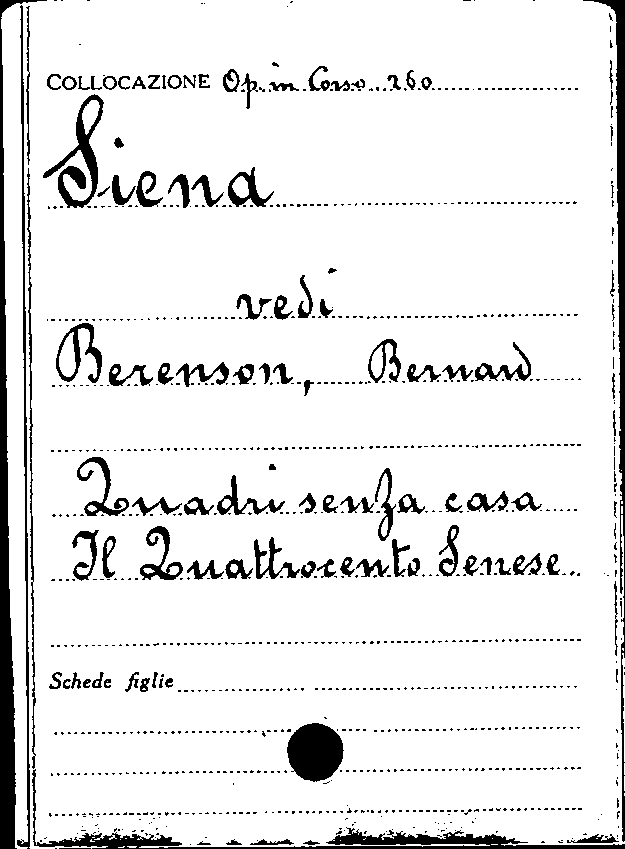 COLLOCAZIONE Op. in Corso 260
Siena
vedi
Berenson, Bernard
Quadri senza casa
Il Quattrocento Senese.
Schede figlie